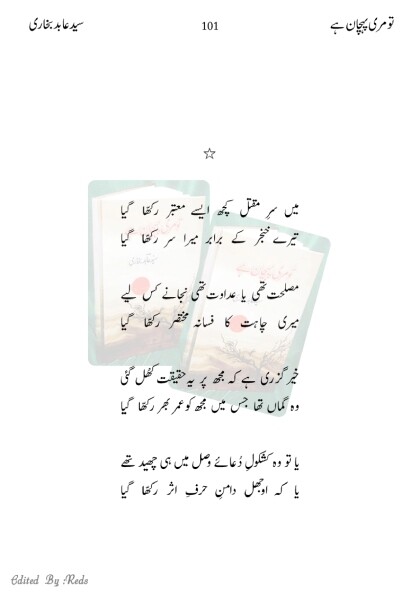 تو مری پہچان ہے 101 سید عابد بخاری
☆
میں سرِ مقتل کچھ ایسے معتبر رکھا گیا
تیرے خنجر کے برابر میرا سر رکھا گیا
مصلحت تھی یا عداوت تھی نجانے کس لیے
میری چاہت کا فسانہ مختصر رکھا گیا
خیر گزری ہے کہ مجھ پر یہ حقیقت کھُل گئی
وہ گماں تھا جس میں مجھ کو عمر بھر رکھا گیا
یا تو وہ کشکولِ دُعائے وصل میں ہی چھید تھے
یا کہ اوجھل دامنِ حرفِ اثر رکھا گیا
Edited By :Reds